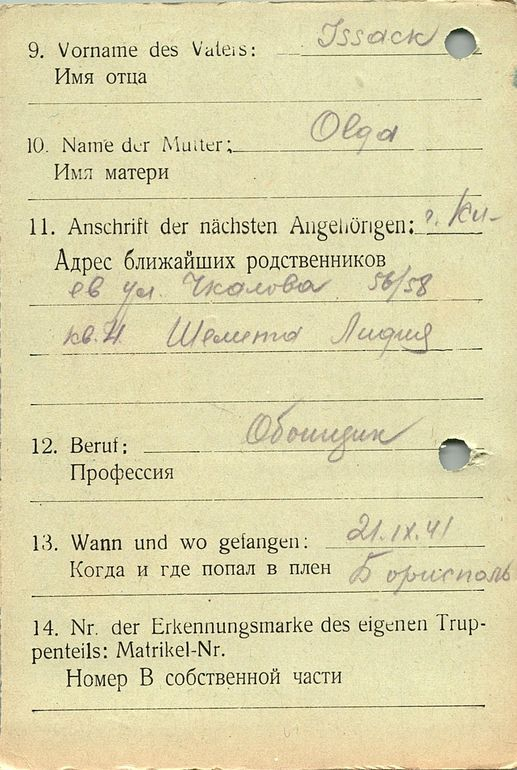 9. Vorname des Vaters: Issack
Имя отца
10. Name der Mutter: Olga
Имя матери
11. Anschrift der nächsten Angehörigen: г. Ки-
Адрес ближайших родственников
ев ул. Чкалова 56/58
кв. 4. Шелета Лидия
12. Beruf: Обойщик
Профессия
13. Wann und wo gefangen: 21.IX.41
Когда и где попал в плен Борисполь
14. Nr. der Erkennungsmarke des eigenen Trup-
penteils: Matrikel-Nr.
Номер В собственной части